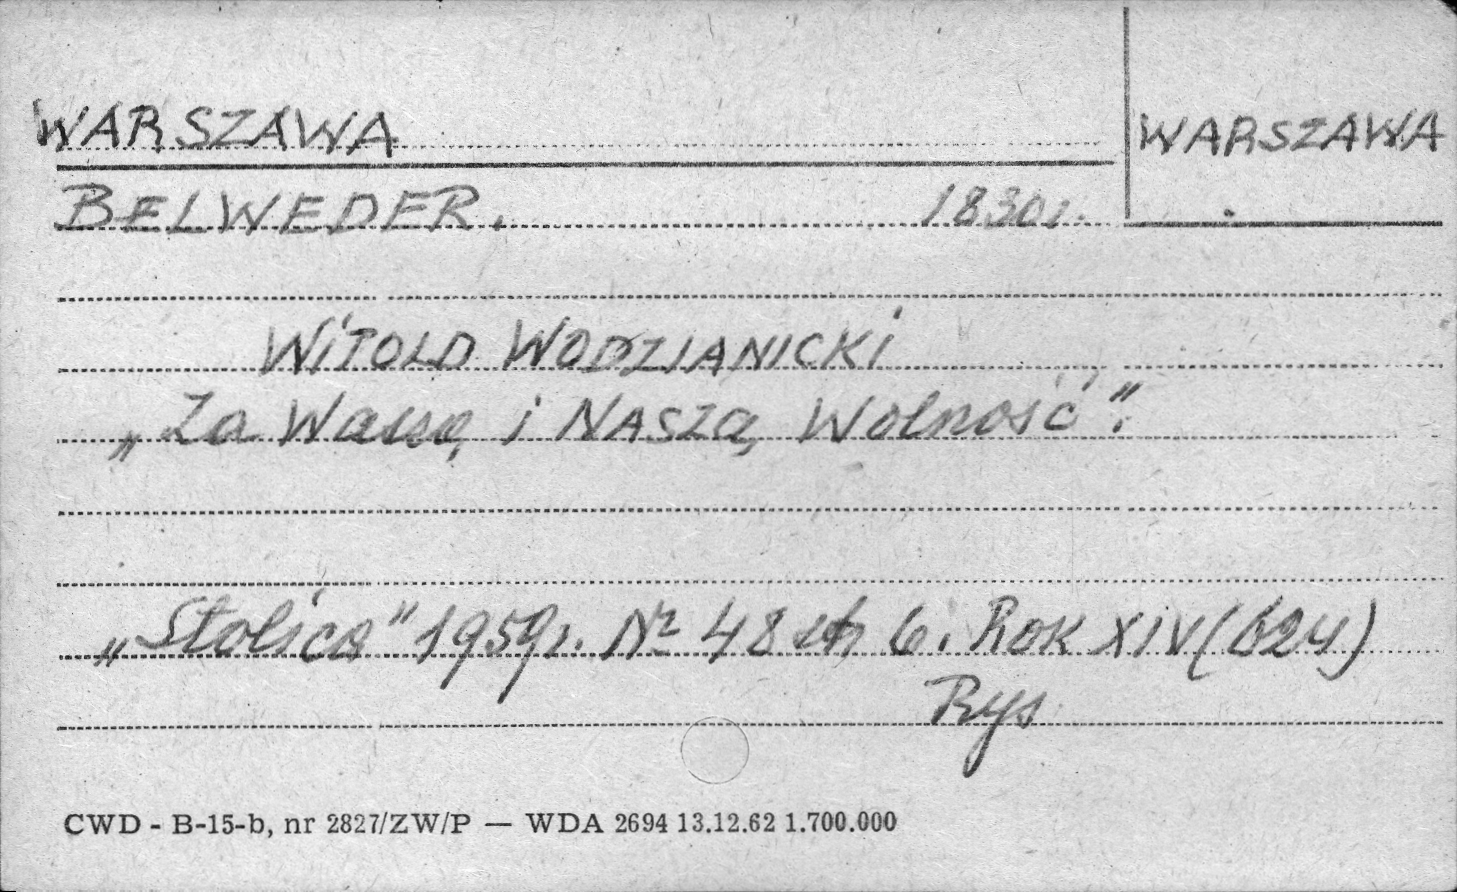 WARSZAWA
WARSZAWA
BELWEDER. 1830 r.
WITOLD WODZIANICKI
„Za Waszą i NASZĄ Wolność".
„Stolica" 1959 r. Nr 48 str 6. Rok XIV (624)
Rys
CWD - B-15-b, nr 2827/ZW/P — WDA 2694 13.12.62 1.700.000